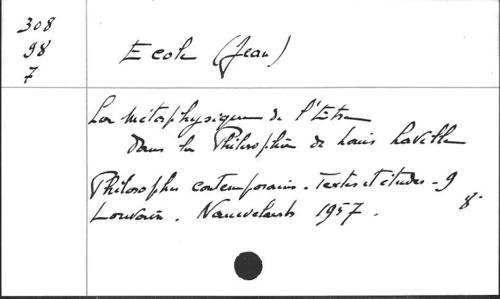 308
98
7
Ecole (Jean)
La métaphysique de l'Etre
dans la Philosophie de Louis Lavelle
Philosophes contemporains - Textes et études - 9
Louvain. Nauwelaerts 1957.
8°